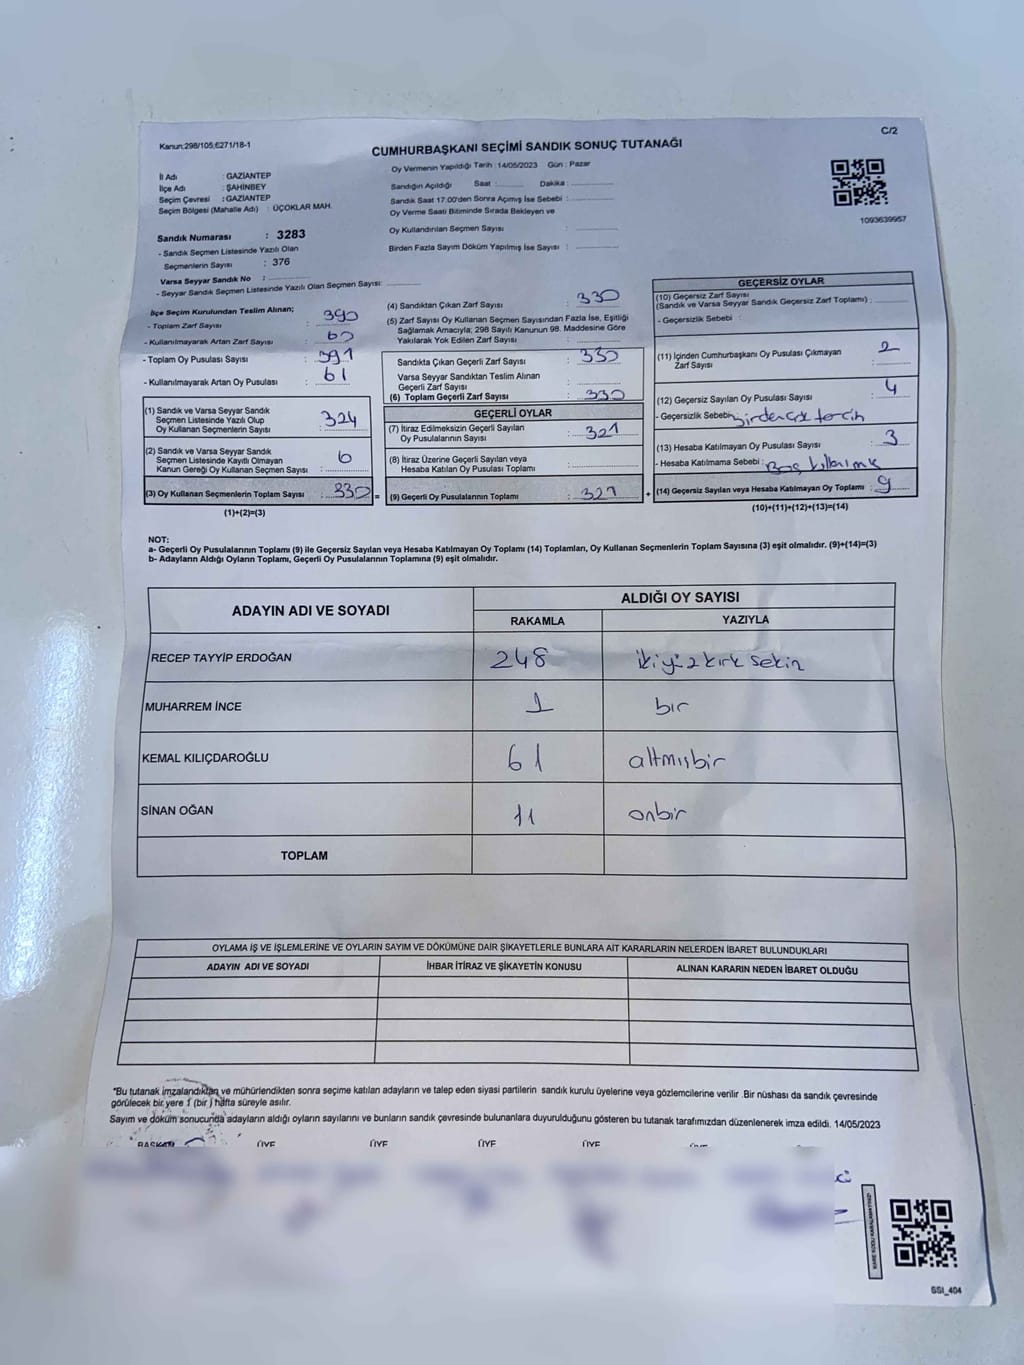 C/2
Kanun:298/105,6271/18-1
CUMHURBAŞKANI SEÇİMİ SANDIK SONUÇ TUTANAĞI
Oy Vermenin Yapıldığı Tarih : 14/05/2023 Gün : Pazar
İl Adı : GAZİANTEP
İlçe Adı : ŞAHİNBEY
Seçim Çevresi : GAZİANTEP
Seçim Bölgesi (Mahalle Adı) : ÜÇOKLAR MAH.
Sandığın Açıldığı Saat : Dakika :
Sandık Saat 17.00'den Sonra Açımış İse Sebebi :
Oy Verme Saati Bitiminde Sırada Bekleyen ve
Oy Kullandırılan Seçmen Sayısı :
Birden Fazla Sayım Döküm Yapılmış İse Sayısı :
1093639957
Sandık Numarası : 3283
- Sandık Seçmen Listesinde Yazılı Olan
Seçmenlerin Sayısı : 376
Varsa Seyyar Sandık No :
- Seyyar Sandık Seçmen Listesinde Yazılı Olan Seçmen Sayısı:
İlçe Seçim Kurulundan Teslim Alınan;
- Toplam Zarf Sayısı : 390
- Kullanılmayarak Artan Zarf Sayısı : 60
- Toplam Oy Pusulası Sayısı : 391
- Kullanılmayarak Artan Oy Pusulası : 61
(1) Sandık ve Varsa Seyyar Sandık
Seçmen Listesinde Yazılı Olup
Oy Kullanan Seçmenlerin Sayısı : 324
(2) Sandık ve Varsa Seyyar Sandık
Seçmen Listesinde Kayıtlı Olmayan
Kanun Gereği Oy Kullanan Seçmen Sayısı : 6
(3) Oy Kullanan Seçmenlerin Toplam Sayısı : 330 =
(1)+(2)=(3)
(4) Sandıktan Çıkan Zarf Sayısı : 330
(5) Zarf Sayısı Oy Kullanan Seçmen Sayısından Fazla İse, Eşitliği
Sağlamak Amacıyla; 298 Sayılı Kanunun 98. Maddesine Göre
Yakılarak Yok Edilen Zarf Sayısı :
Sandıkta Çıkan Geçerli Zarf Sayısı : 330
Varsa Seyyar Sandıktan Teslim Alınan
Geçerli Zarf Sayısı :
(6) Toplam Geçerli Zarf Sayısı : 330
GEÇERLİ OYLAR
(7) İtiraz Edilmeksizin Geçerli Sayılan
Oy Pusulalarının Sayısı : 321
(8) İtiraz Üzerine Geçerli Sayılan veya
Hesaba Katılan Oy Pusulası Toplamı :
(9) Geçerli Oy Pusulalarının Toplamı : 321 +
GEÇERSİZ OYLAR
(10) Geçersiz Zarf Sayısı
(Sandık ve Varsa Seyyar Sandık Geçersiz Zarf Toplamı) :
- Geçersizlik Sebebi :
(11) İçinden Cumhurbaşkanı Oy Pusulası Çıkmayan
Zarf Sayısı : 2
(12) Geçersiz Sayılan Oy Pusulası Sayısı : 4
- Geçersizlik Sebebi: birden çok tercih
(13) Hesaba Katılmayan Oy Pusulası Sayısı : 3
- Hesaba Katılmama Sebebi : Boş
(14) Geçersiz Sayılan veya Hesaba Katılmayan Oy Toplamı : 9
(10)+(11)+(12)+(13)=(14)
NOT:
a- Geçerli Oy Pusulalarının Toplamı (9) ile Geçersiz Sayılan veya Hesaba Katılmayan Oy Toplamı (14) Toplamları, Oy Kullanan Seçmenlerin Toplam Sayısına (3) eşit olmalıdır. (9)+(14)=(3)
b- Adayların Aldığı Oyların Toplamı, Geçerli Oy Pusulalarının Toplamına (9) eşit olmalıdır.
ADAYIN ADI VE SOYADI
ALDIĞI OY SAYISI
RAKAMLA YAZIYLA
RECEP TAYYİP ERDOĞAN 248 ikiyüzkırk sekiz
MUHARREM İNCE 1 bir
KEMAL KILIÇDAROĞLU 61 altmışbir
SİNAN OĞAN 11 onbir
TOPLAM
OYLAMA İŞ VE İŞLEMLERİNE VE OYLARIN SAYIM VE DÖKÜMÜNE DAİR ŞİKAYETLERLE BUNLARA AİT KARARLARIN NELERDEN İBARET BULUNDUKLARI
ADAYIN ADI VE SOYADI İHBAR İTİRAZ VE ŞİKAYETİN KONUSU ALINAN KARARIN NEDEN İBARET OLDUĞU
*Bu tutanak imzalandıktan ve mühürlendikten sonra seçime katılan adayların ve talep eden siyasi partilerin sandık kurulu üyelerine veya gözlemcilerine verilir .Bir nüshası da sandık çevresinde
görülecek bir yere 1 (bir ) hafta süreyle asılır.
Sayım ve döküm sonucunda adayların aldığı oyların sayılarını ve bunların sandık çevresinde bulunanlara duyurulduğunu gösteren bu tutanak tarafımızdan düzenlenerek imza edildi. 14/05/2023
BAŞKAN ÜYE ÜYE ÜYE ÜYE
SSI_404